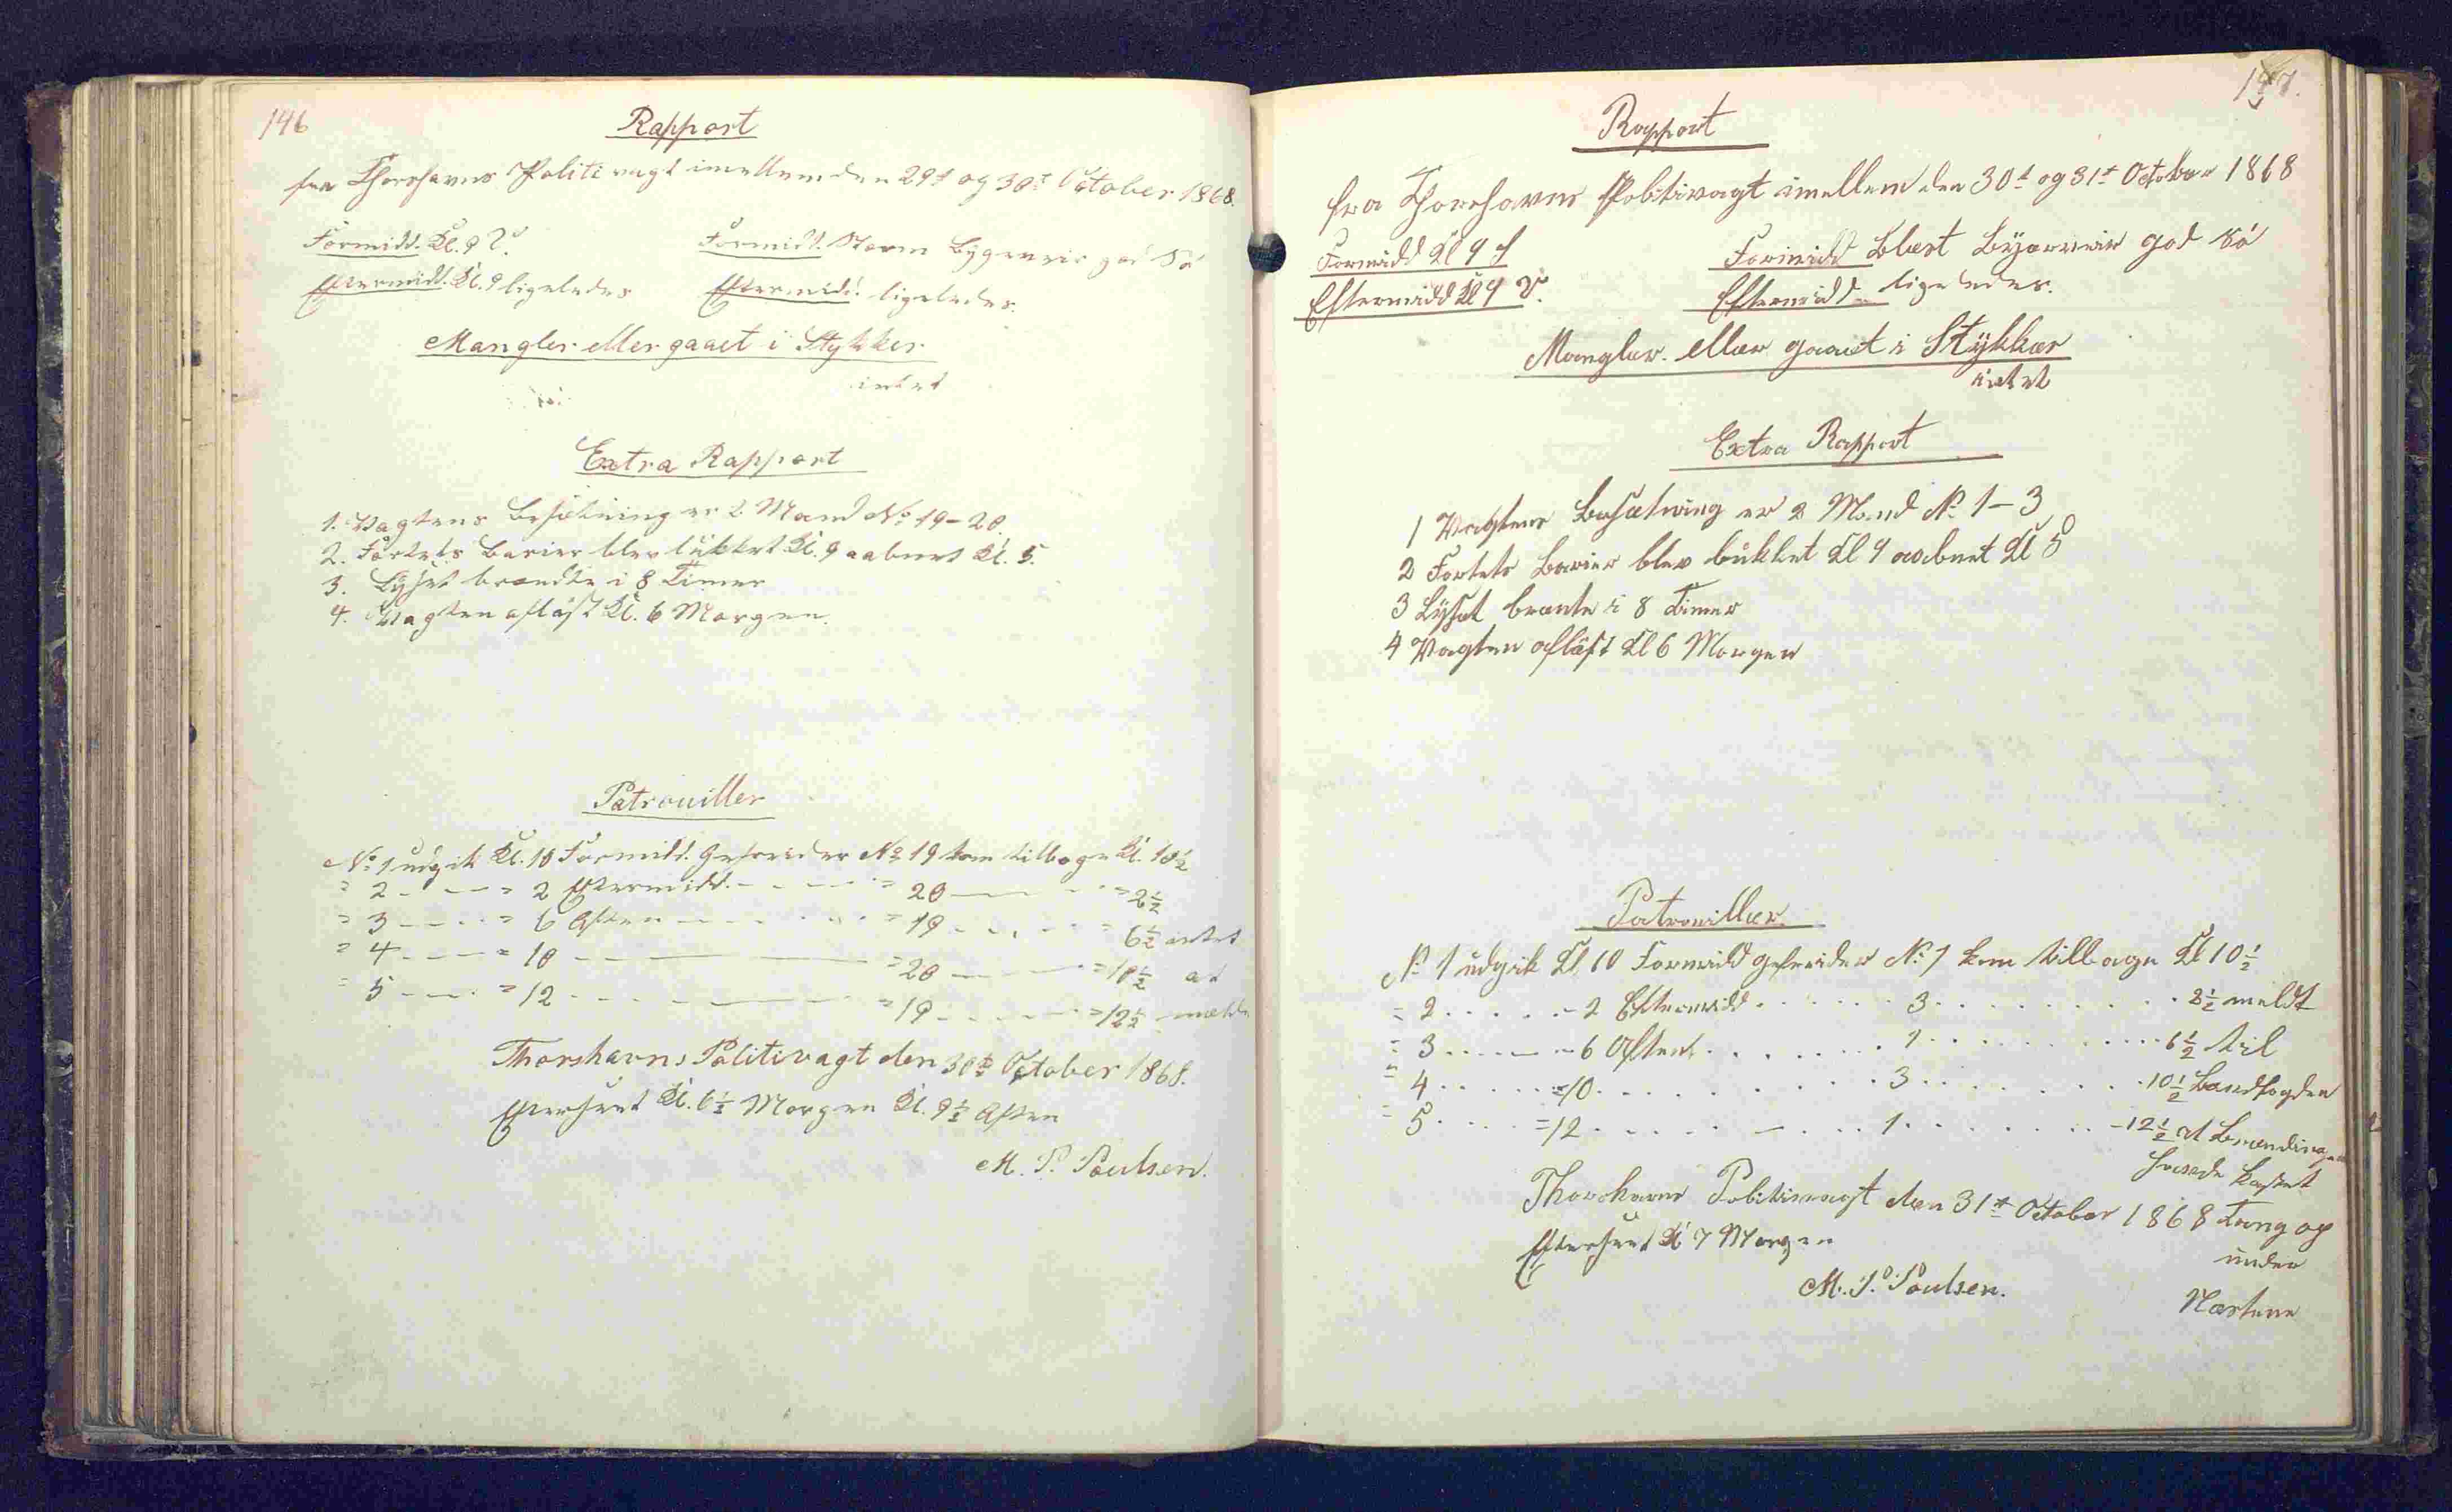 146
Rapport
fra Thorshavns Politivagt imellem den 29de og 30te October 1868.
Formidd. Kl. 9 V.
Formidd. Storm Bygeveir god Sö
Eftermidd. Kl. 9 ligeledes
Eftermidd. ligeledes.
Mangler eller gaaet i Stykker
intet
Extra Rapport
1. Vagtens Besætning er 2 Mand No 19-20.
2. Fortets Barier blev lukket Kl. 9 aabnet Kl. 5.
3. Lyset brændte i 8 Timer
4. Vagten aflöst Kl. 6 Morgen.
Patrouiller
No 1 udgik Kl. 10 Formidd. Gefreider No 19 kom tilbage Kl. 10½
= 2 - - - = 2 Eftermidd. - - - = 20 - - - = 2½
= 3 - - - = 6 Aften - - - = 19 - - - = 6½ intet
= 4 - - - = 10 - - - = 20 - - - = 10½ at
= 5 - - - = 12 - - - = 19 - - - = 12½ melde
Thorshavns Politivagt den 30te October 1868.
Efterseet Kl. 6½ Morgen Kl. 9½ Aften
M. P. Poulsen.
147.
Rapport
fra Thorshavns Politivagt imellem den 30t og 31t October 1868
Formidd Kl 9
Formidd Blæst Byxerveir god Sö
Eftermidd Kl 9 V.
Eftermidd ligeledes.
Mangler eller gaaet i Stykker
intet
Extra Rapport
1 Vagtens Besætning er 2 Mand No 1-3
2 Fortets Barier blev lukket Kl 9 aabnet Kl 5
3 Lyset brænte i 8 Timer
4 Vagten aflöst Kl 6 Morgen
Patrouiller
No 1 udgik Kl 10 Formidd gefreider No 1 kom tilbage Kl 10½
= 2 . . . . - 2 Eftermidd . . . . 3 . . . . 2½ meldt
= 3 . . . . - 6 Aften . . . . 1 . . . . 6½ til
= 4 . . . . = 10 . . . . 3 . . . . 10½ Landfogden
= 5 . . . . = 12 . . . . 1 . . . . 12½ at Brændingen
havde kastet
Thorshavns Politivagt den 31te October 1868 Tang op
Efterseet Kl 7 Morgen
under
M. P. Poulsen.
Næstene